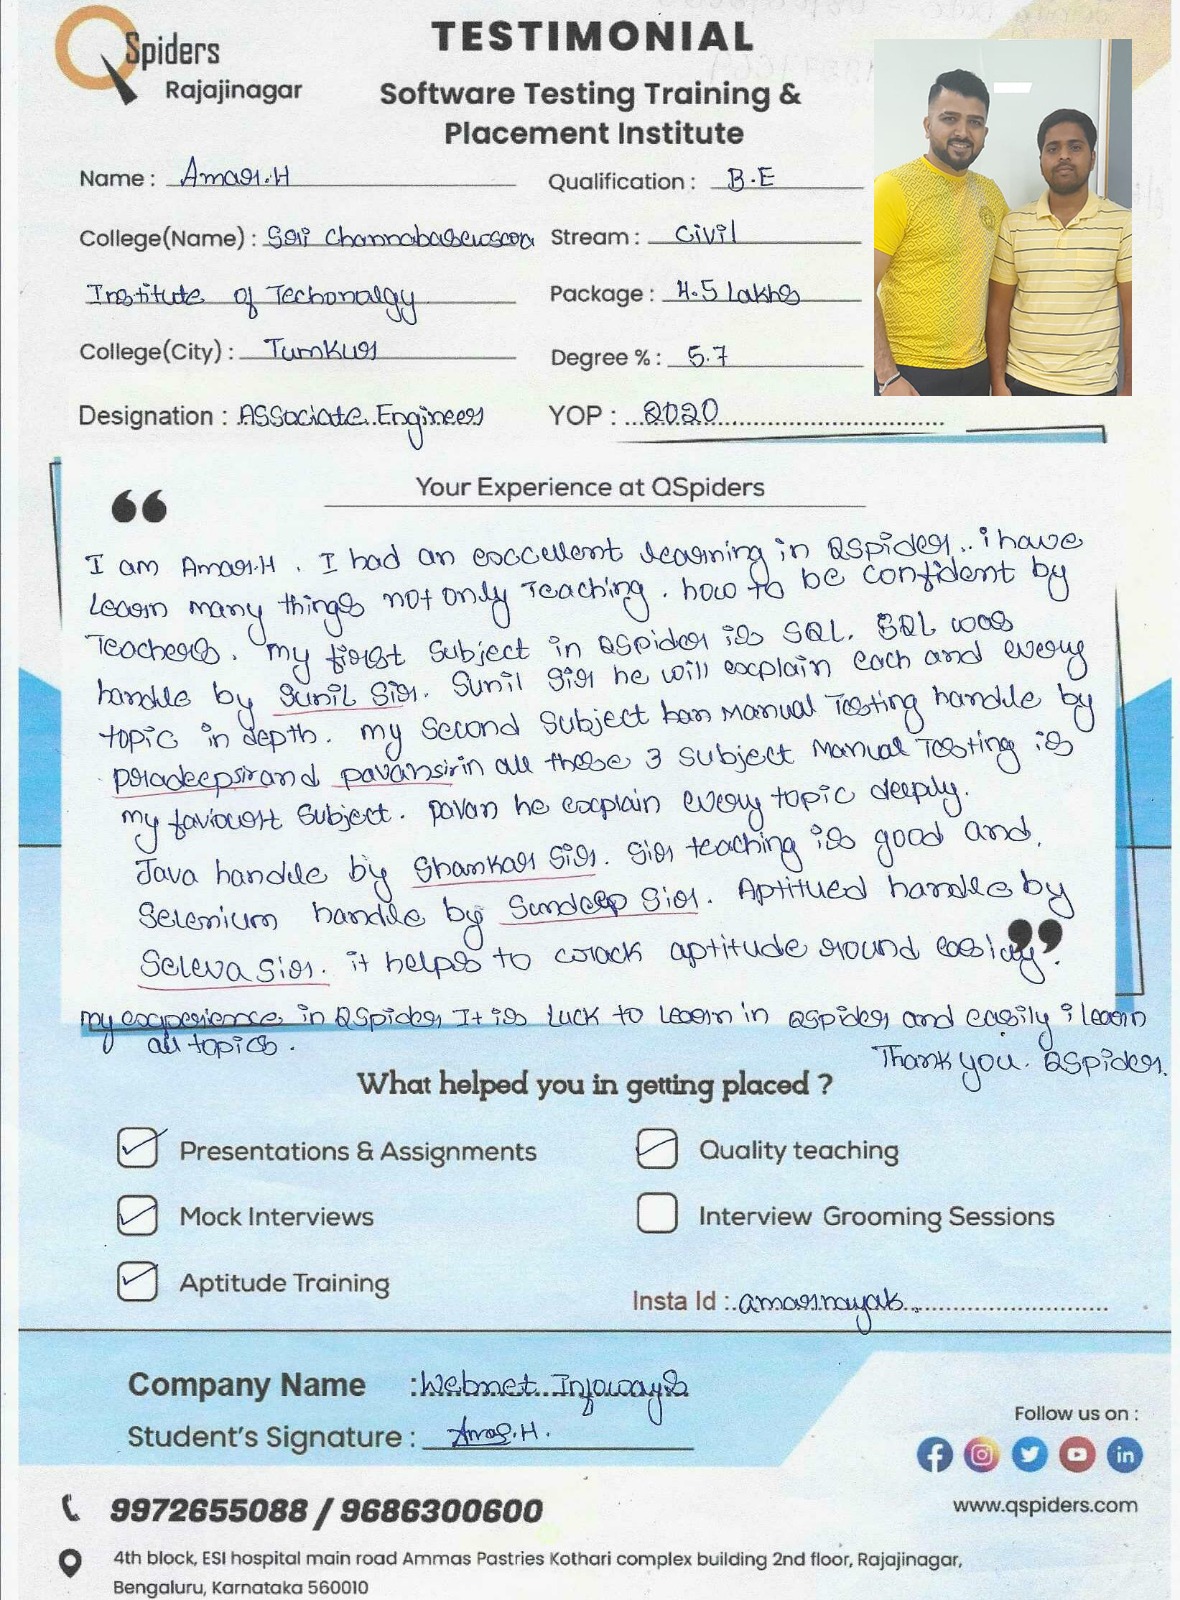 QSpiders
Rajajinagar
TESTIMONIAL
Software Testing Training &
Placement Institute
Name : Amar.H
Qualification : B.E
College(Name) : Sri Channabasewscoa
Stream : Civil
Institute of Techonalgy
Package : 4.5 Lakhs
College(City) : Tumkur
Degree % : 5.7
Designation : ASSociate Engineer
YOP : 2020
Your Experience at QSpiders
I am Amar.H . I had an exccellent learning in QSpider.. i have
Learn many things not only Teaching . how to be confident by
Teachers. my first Subject in QSpider is SQL. SQL was
handle by Sunil Sir. Sunil Sir he will explain each and every
topic in depth. my Second Subject Manual Testing handle by
pradeepsir and pavansir in all these 3 Subject Manual Testing is
my faviourt Subject. pavan he explain every topic deeply.
Java handle by Shankar Sir. Sir teaching is good and.
Selenium handle by Sundeep Sir. Aptitued handle by
Seleva Sir. it helps to crack aptitude round easily.
my exxperience in QSpider It is luck to learn in QSpider and easily i learn
all topics.
Thank you. QSpider.
What helped you in getting placed ?
Presentations & Assignments
Quality teaching
Mock Interviews
Interview Grooming Sessions
Aptitude Training
Insta Id : amarnayak
Company Name : Webnet Infoways
Student's Signature : Amar.H.
Follow us on :
9972655088 / 9686300600
www.qspiders.com
4th block, ESI hospital main road Ammas Pastries Kothari complex building 2nd floor, Rajajinagar,
Bengaluru, Karnataka 560010